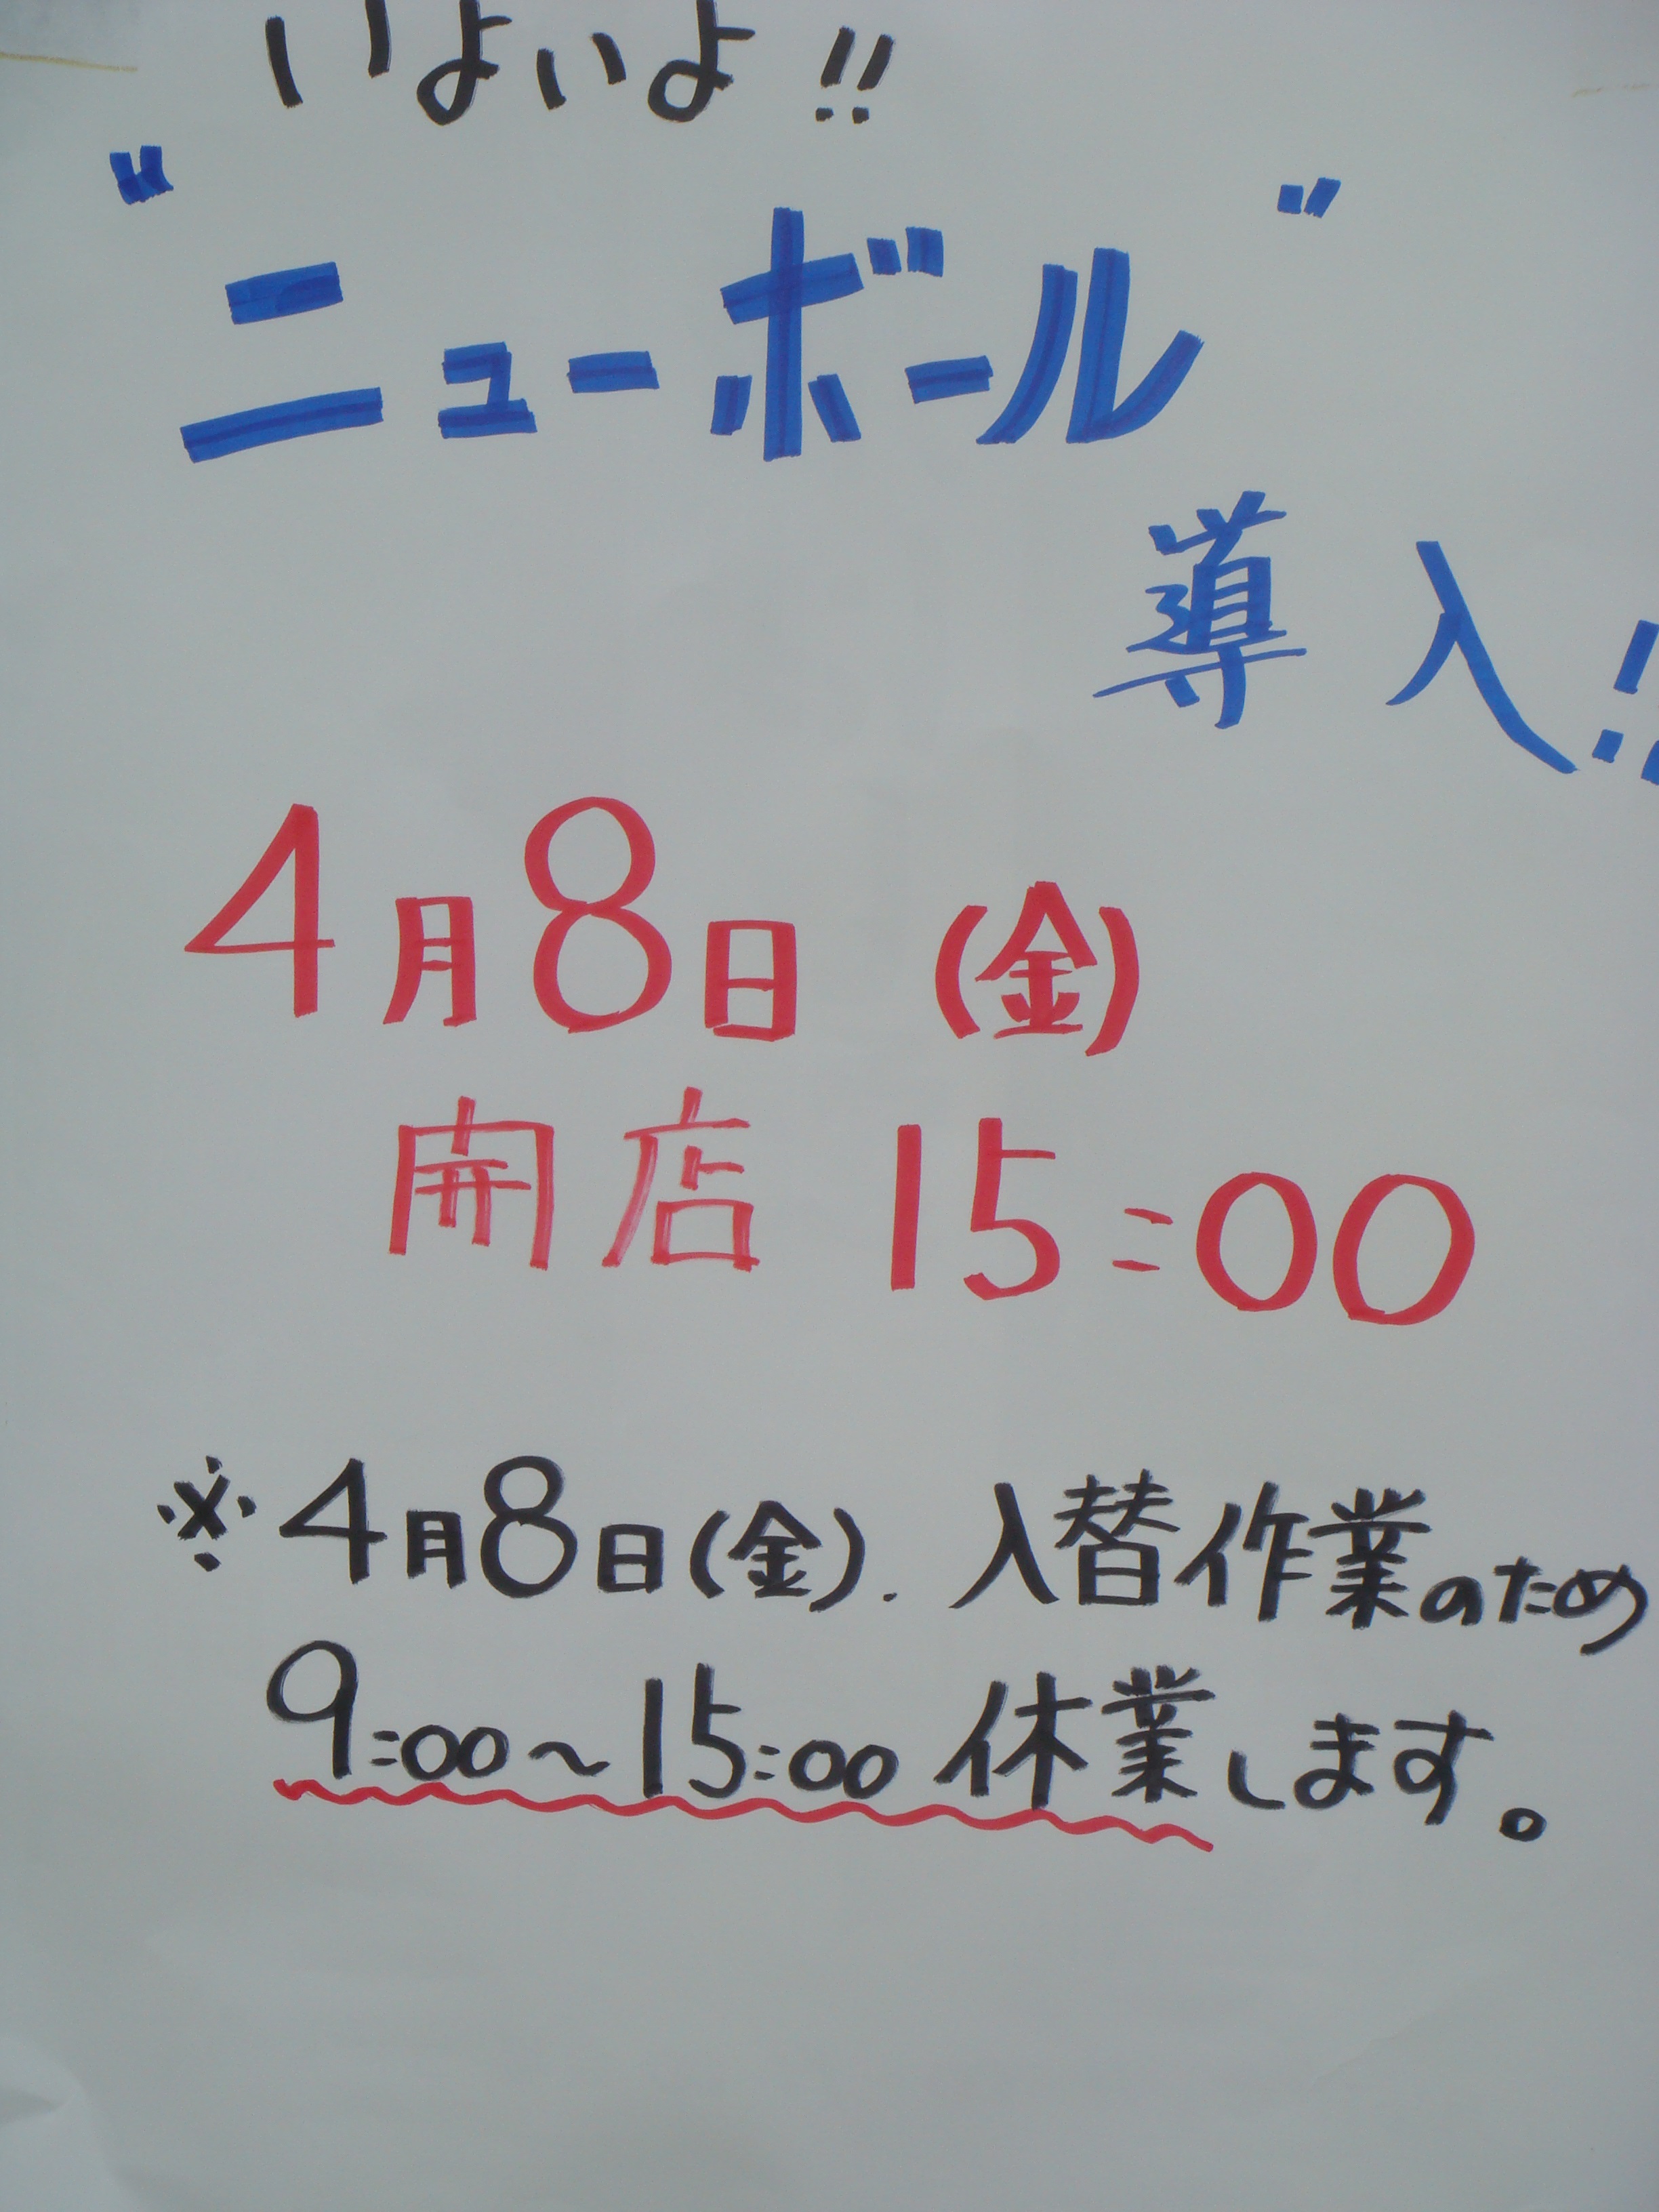 いよいよ!!
"ニューボール"
導入!!
4月8日(金)
開店 15:00
※4月8日(金). 入替作業のため
9:00~15:00 休業します。